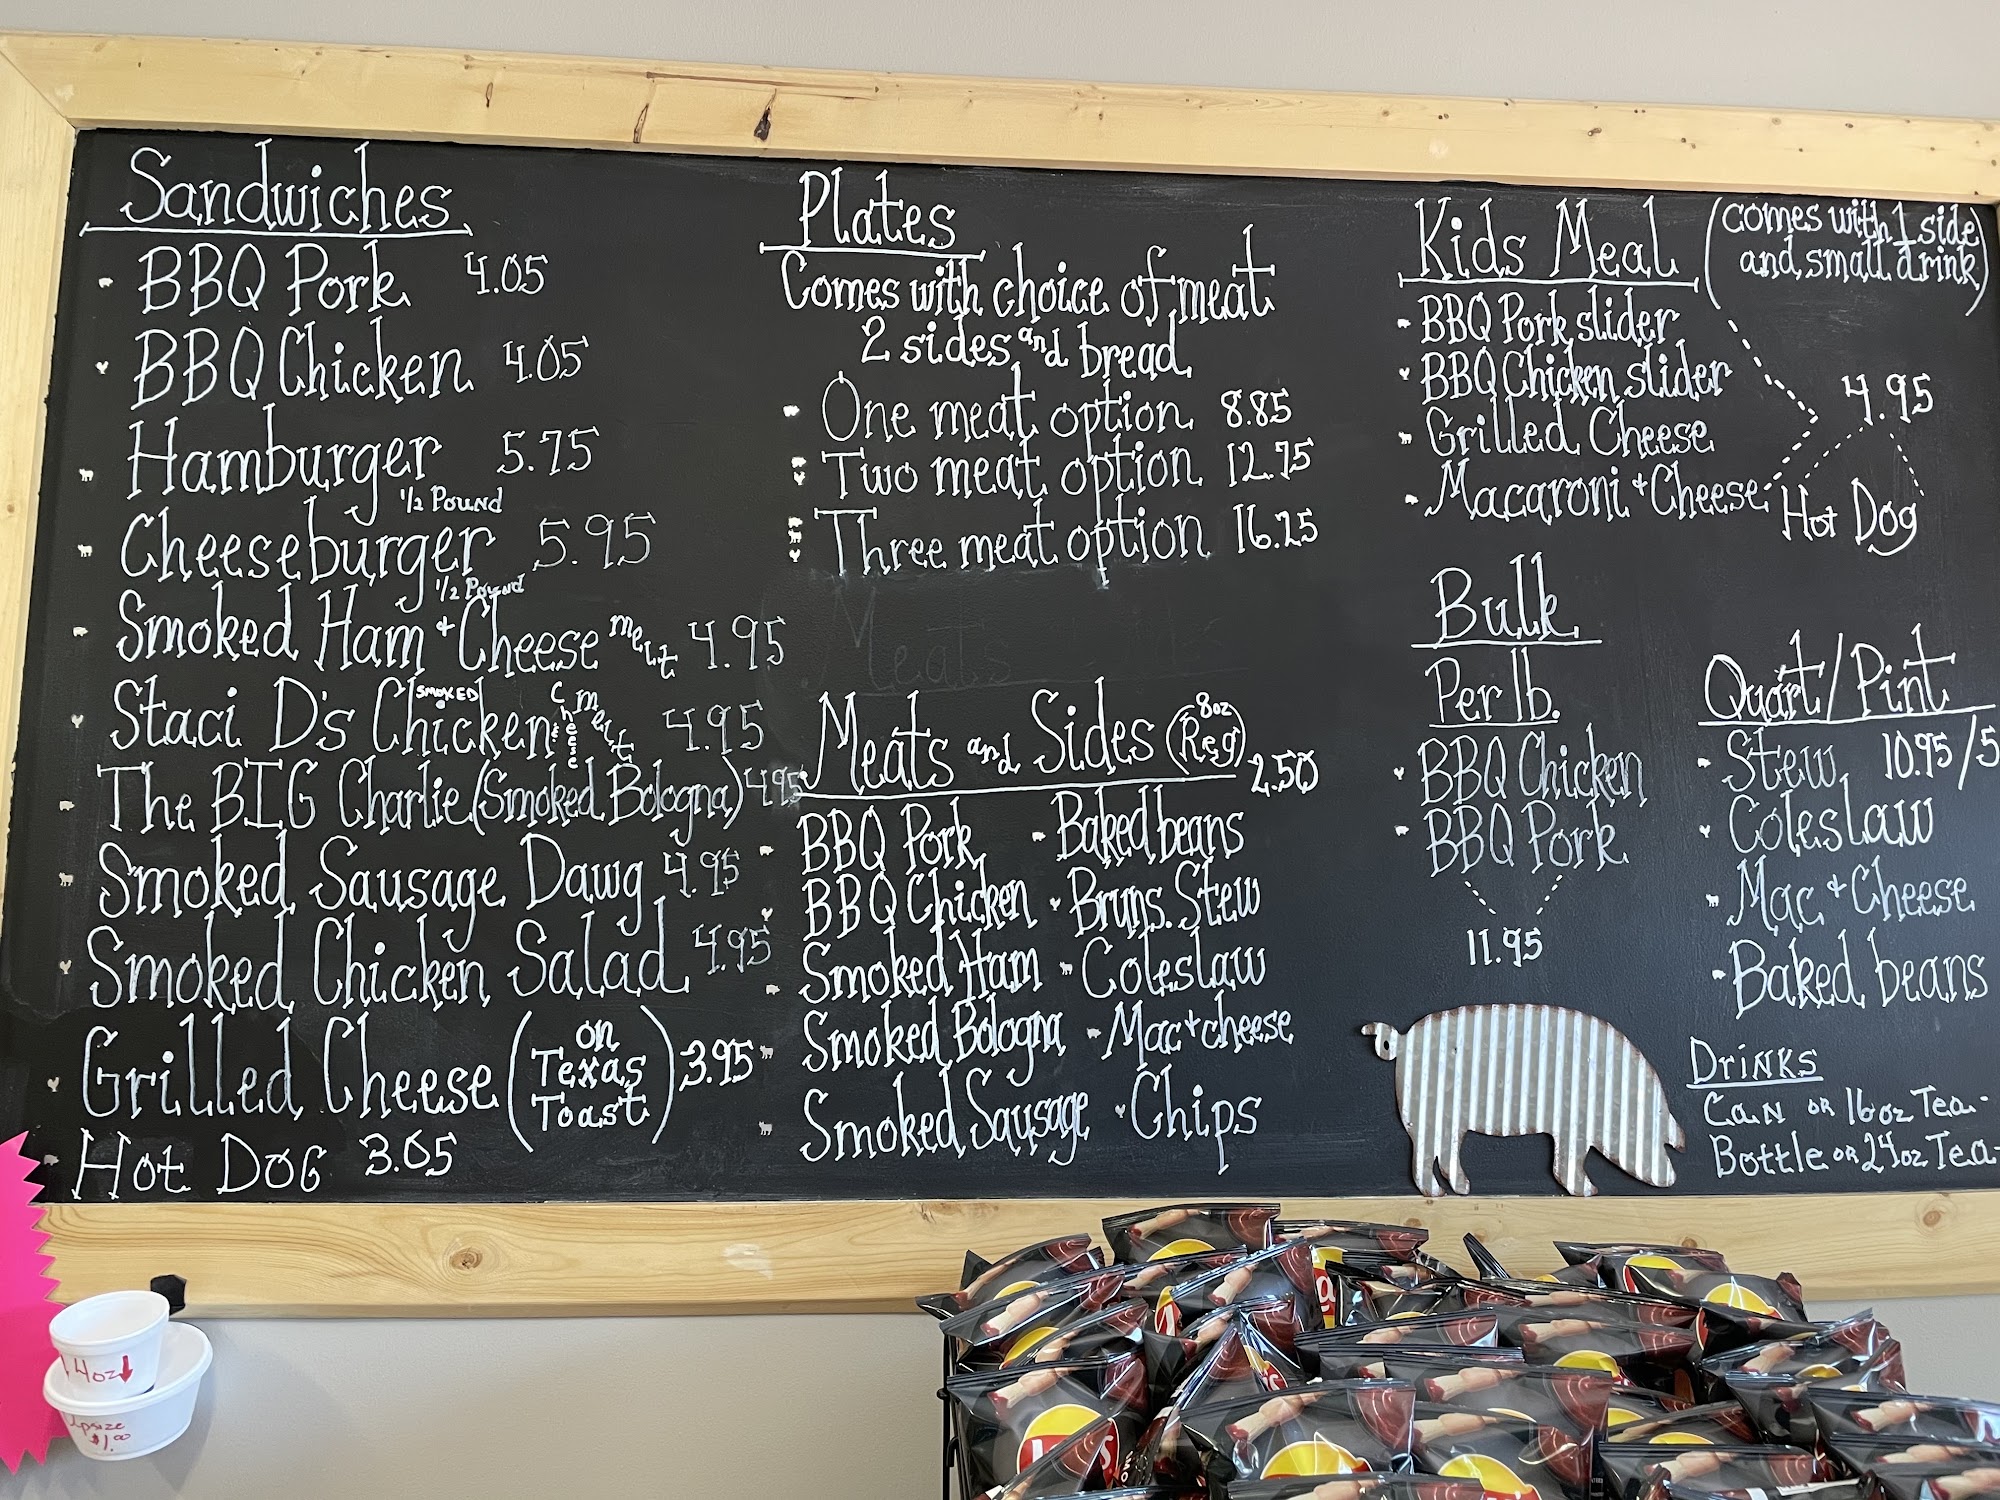 Sandwiches
BBQ Pork 4.05
BBQ Chicken 4.05
Hamburger 5.75
1/2 Pound
Cheeseburger 5.95
1/2 Pound
Smoked Ham + Cheese melt 4.95
Staci D's Smoked Chicken + cheese melt 4.95
The BIG Charlie (Smoked Bologna) 4.95
Smoked Sausage Dawg 4.95
Smoked Chicken Salad 4.95
Grilled Cheese (on Texas Toast) 3.95
Hot Dog 3.05
Plates
Comes with choice of meat
2 sides and bread
One meat option 8.85
Two meat option 12.75
Three meat option 16.25
Meats
Meats and Sides (8oz Reg) 2.50
BBQ Pork
BBQ Chicken
Smoked Ham
Smoked Bologna
Smoked Sausage
Baked beans
Bruns. Stew
Coleslaw
Mac + cheese
Chips
Kids Meal (comes with 1 side
and small drink)
BBQ Pork slider
BBQ Chicken slider
Grilled Cheese
Macaroni + Cheese
4.95
Hot Dog
Bulk
Per lb.
BBQ Chicken
BBQ Pork
11.95
Quart/Pint
Stew 10.95/5
Coleslaw
Mac + Cheese
Baked beans
Drinks
Can or 16oz Tea-
Bottle or 24oz Tea-
4oz
upsize
$1.00